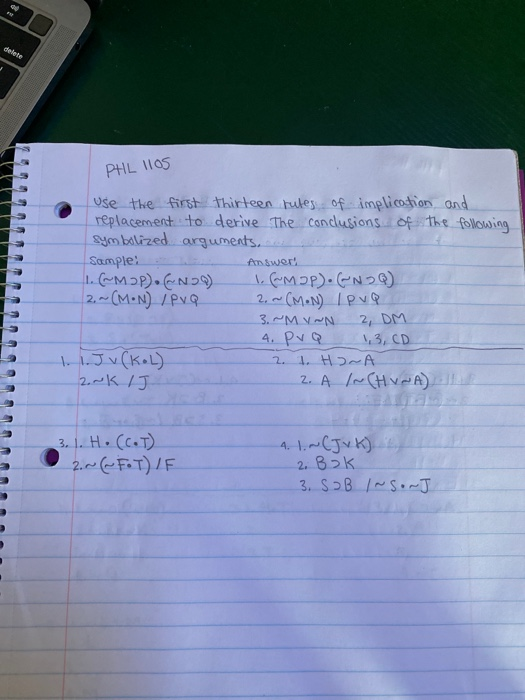 delete
PHL 1105
Use the first thirteen rules of implication and
replacement to derive The conclusions of the following
symbolized arguments.
Sample:
1. (~M⊃P)•(~N⊃Q)
2. ~(M•N) /PvQ
Answer:
1. (~M⊃P)•(~N⊃Q)
2. ~(M•N) /PvQ
3. ~M v ~N 2, DM
4. PvQ 1,3, CD
1. 1. J v (K•L)
2. ~K /J
2. 1. H⊃~A
2. A /~(Hv~A)
3. 1. H•(C•T)
2. ~(~F•T) /F
4. 1. ~(JvK)
2. B⊃K
3. S⊃B /~S•~J